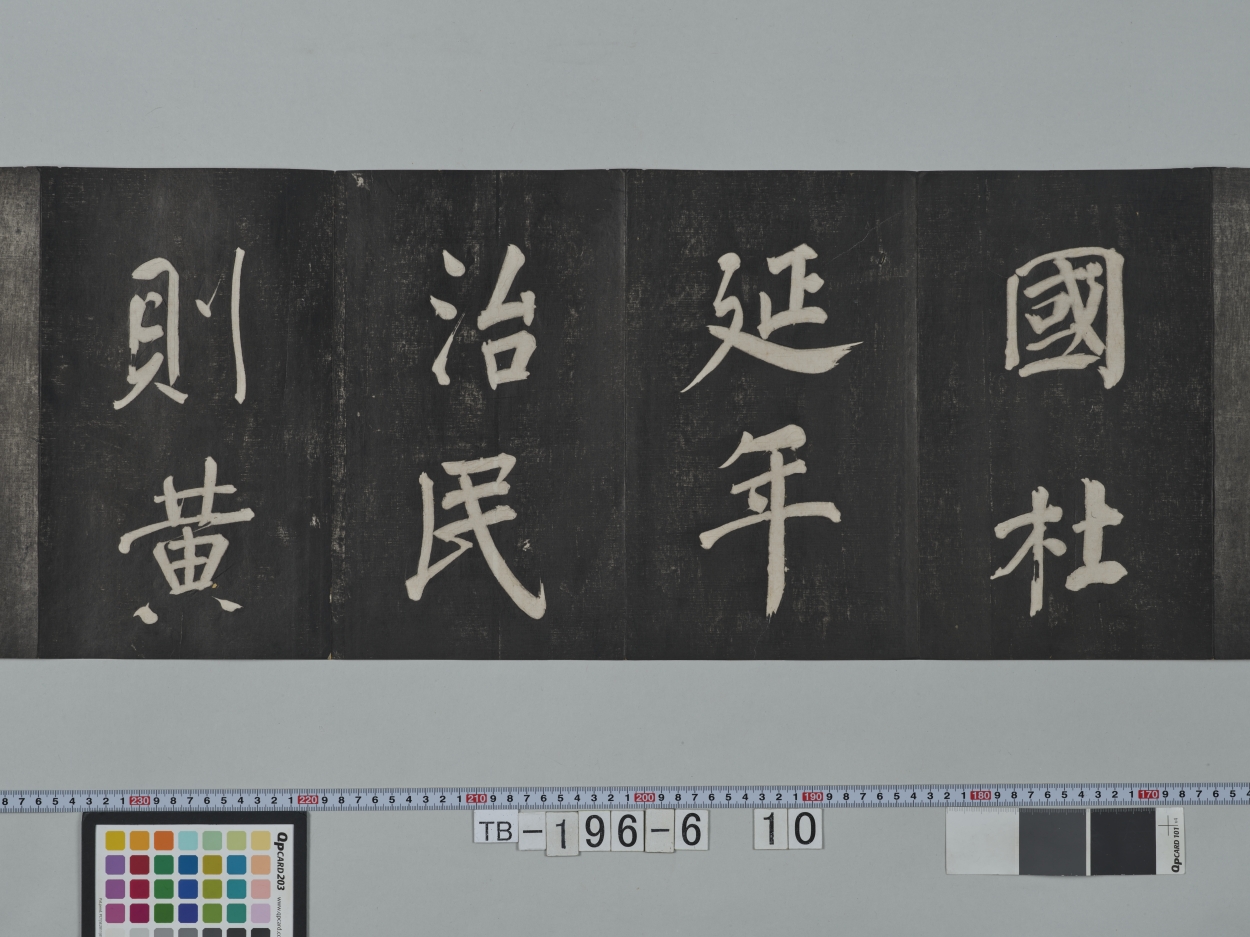 國杜
延年
治民
則黄
8 7 6 5 4 3 2 1 230 9 8 7 6 5 4 3 2 1 220 9 8 7 6 5 4 3 2 1 210 9 8 7 6 5 4 3 2 1 200 9 8 7 6 5 4 3 2 1 190 9 8 7 6 5 4 3 2 1 180 9 8 7 6 5 4 3 2 1 170 9 8 7 6 5 4
TB-196-6 10
QPCARD 203
QPCARD 101